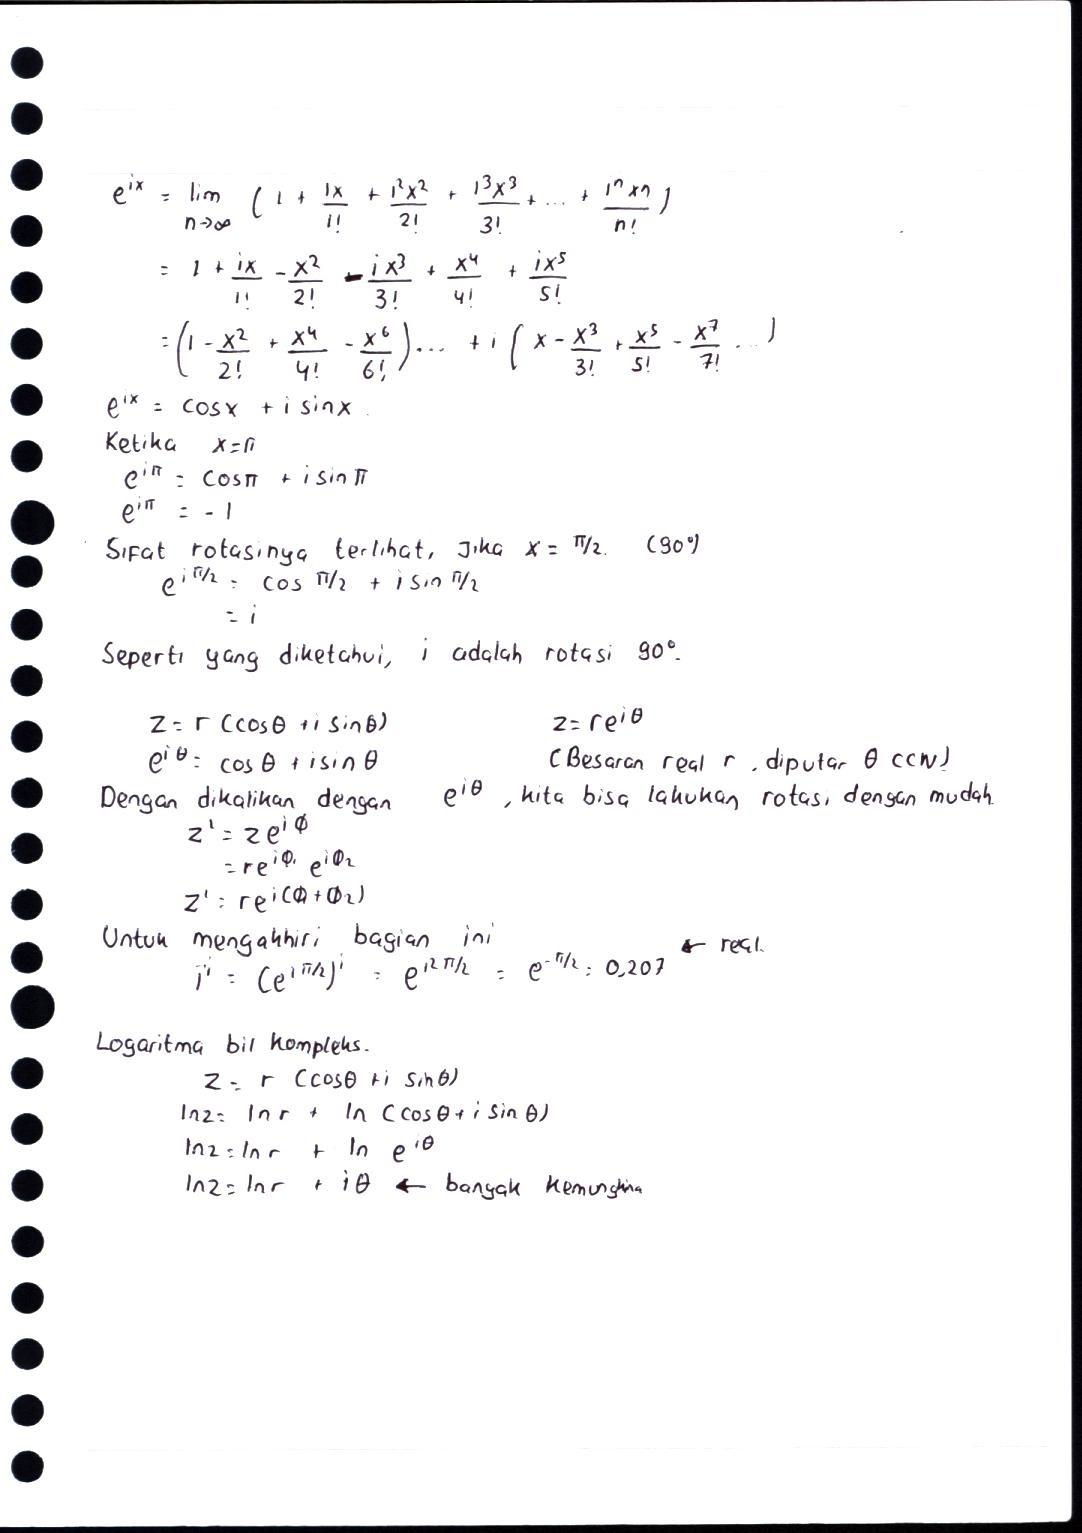 e^{ix} = lim_{n→∞} ( 1 + ix/1! + i²x²/2! + i³x³/3! + ... + iⁿxⁿ/n! )
= 1 + ix/1! - x²/2! - ix³/3! + x⁴/4! + ix⁵/5!
= ( 1 - x²/2! + x⁴/4! - x⁶/6! ) ... + i ( x - x³/3! + x⁵/5! - x⁷/7! ... )
e^{ix} = cosx + i sinx.
Ketika x=π
e^{iπ} = cosπ + i sin π
e^{iπ} = -1
Sifat rotasinya terlihat, Jika x = π/2. (90°)
e^{iπ/2} = cos π/2 + i sin π/2
= i
Seperti yang diketahui, i adalah rotasi 90°.
z = r (cosθ + i sinθ) z = re^{iθ}
e^{iθ} = cos θ + i sin θ (Besaran real r, diputar θ CCW)
Dengan dikalikan dengan e^{iθ}, kita bisa lakukan rotasi dengan mudah
z' = z e^{iφ}
= re^{iφ₁} e^{iφ₂}
z' = re^{i(φ₁+φ₂)}
Untuk mengakhiri bagian ini
i^i = (e^{iπ/2})^i = e^{i²π/2} = e^{-π/2} = 0,207 ← real.
Logaritma bil kompleks.
z = r (cosθ + i sinθ)
ln z = ln r + ln (cos θ + i sin θ)
ln z = ln r + ln e^{iθ}
ln z = ln r + iθ ← banyak kemungkina